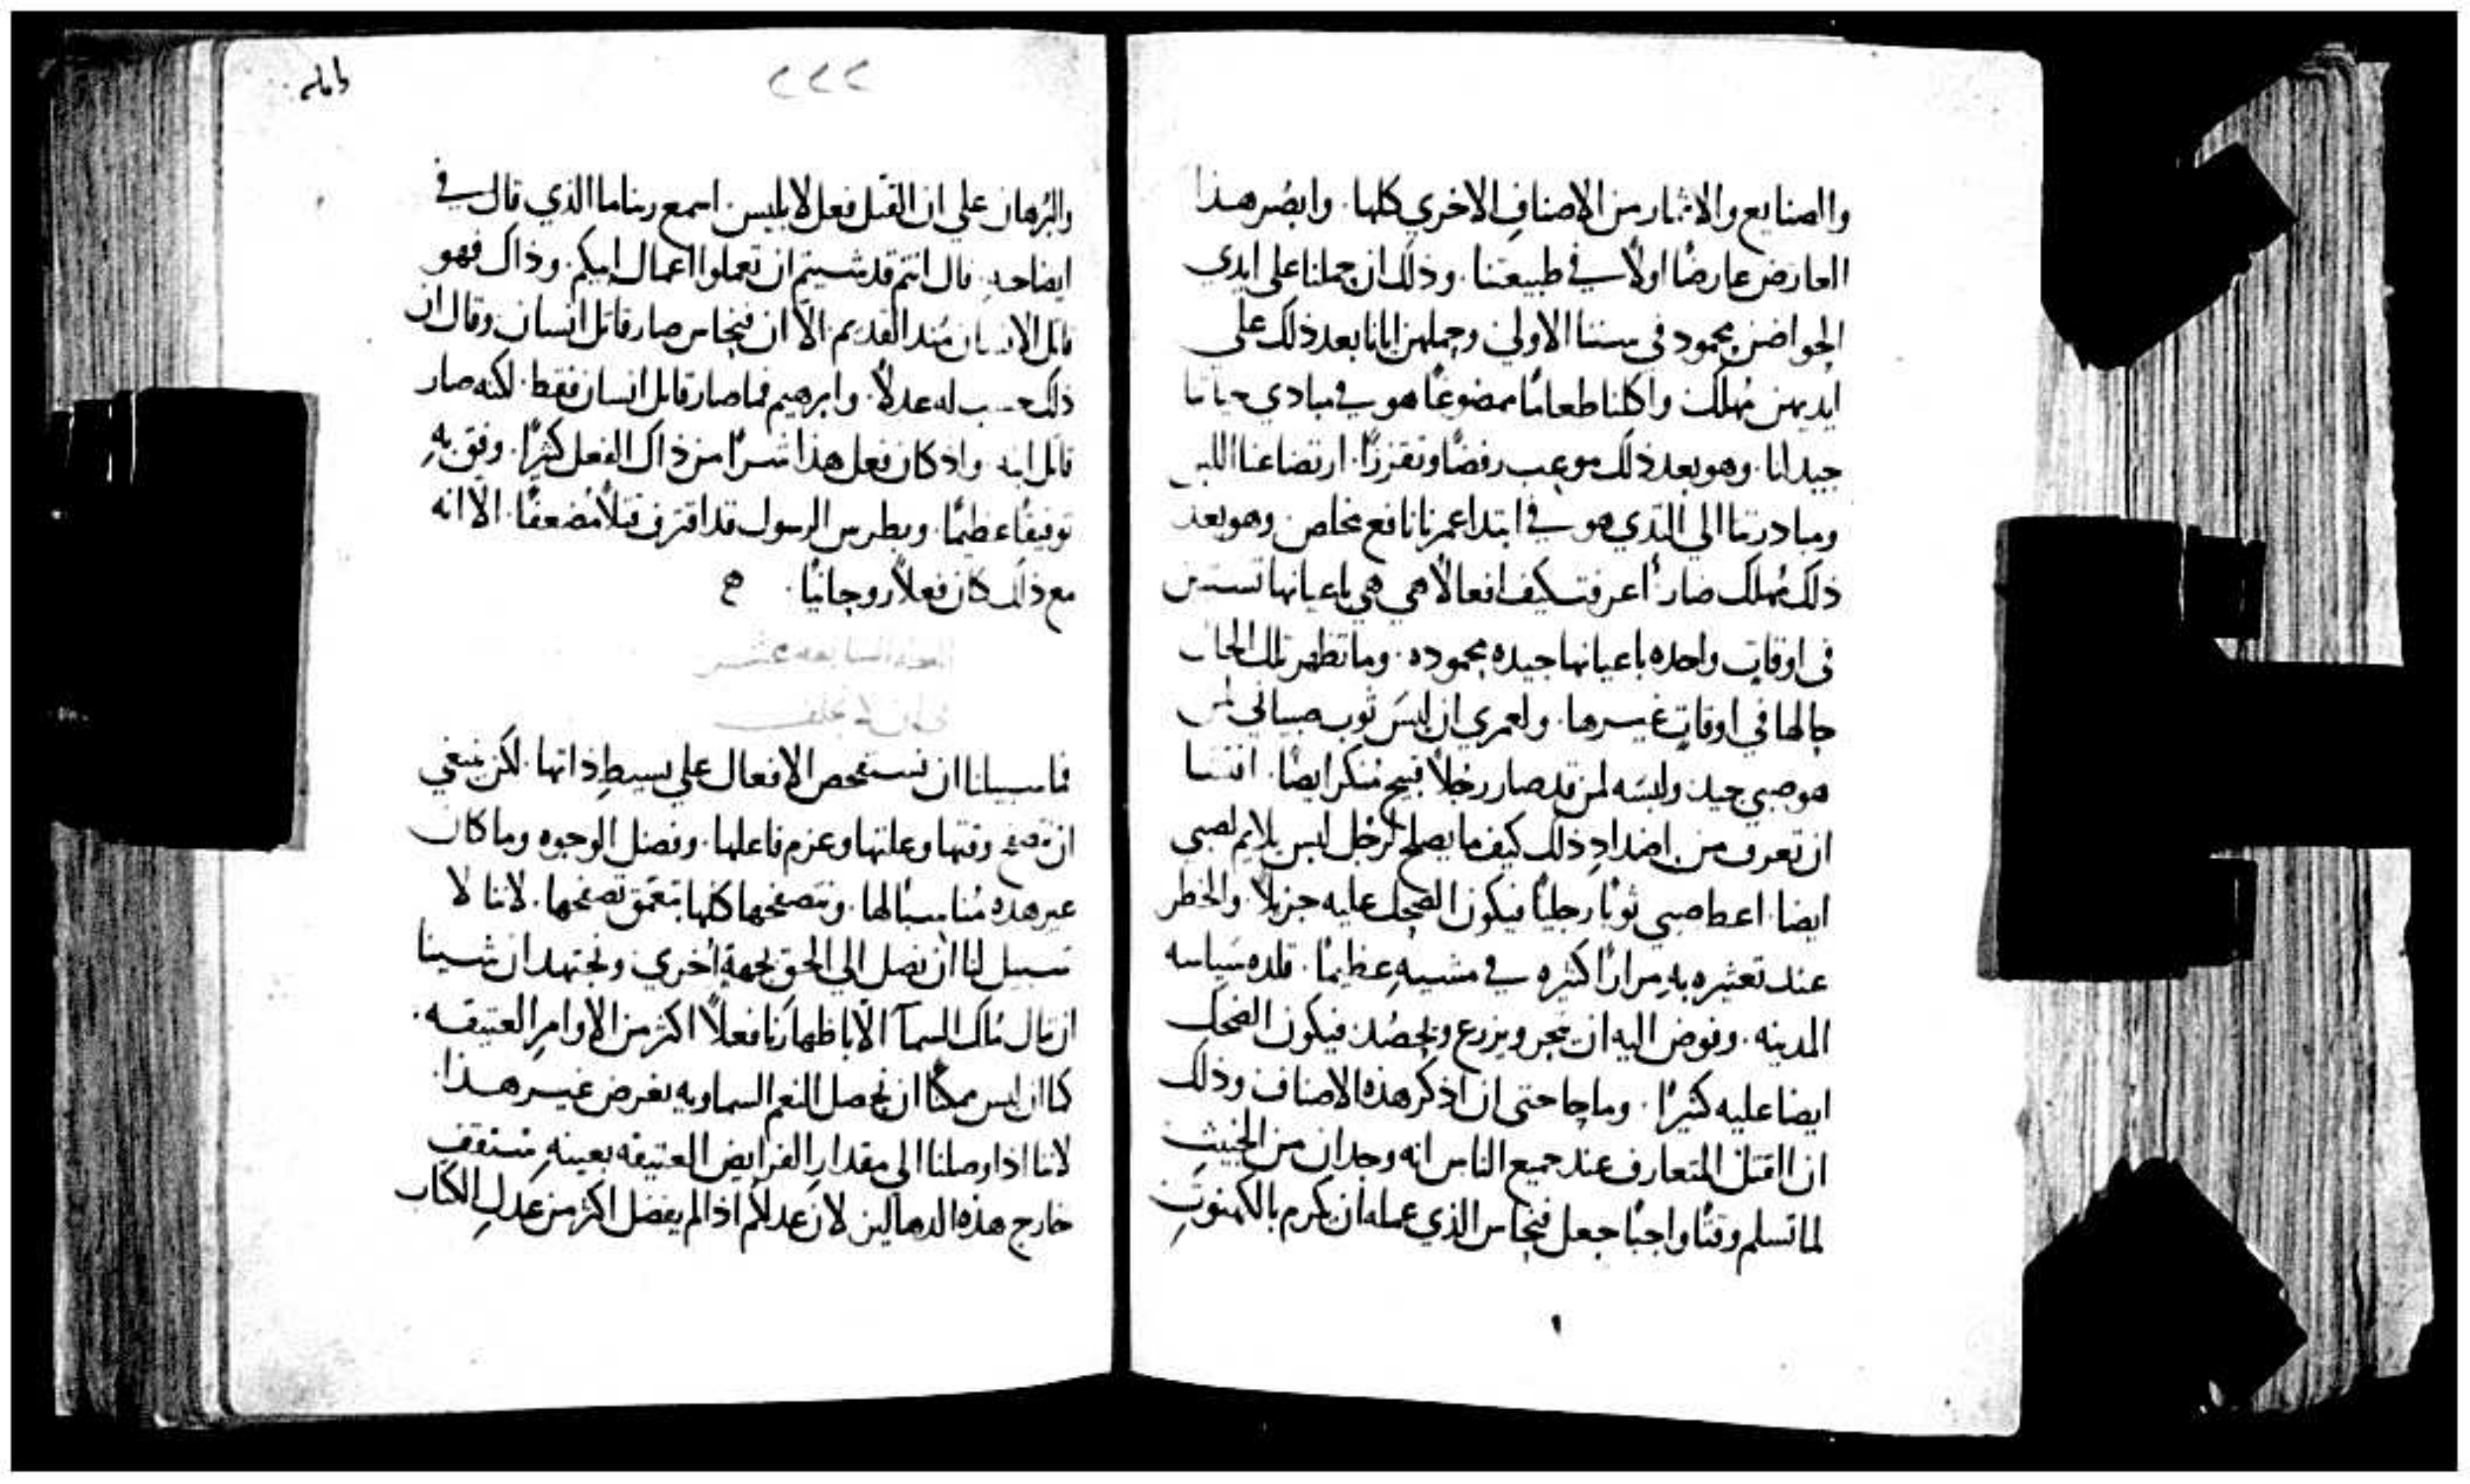 والصنايع والاثمار من الاصنافِ الاخري كلها. وابصُر هذا
العارض عارضًا اولًا في طبيعتنا. وذلك ان حملنا على ايدي
الحواضن محمود في سننا الاولي وحملهن ايانا بعد ذلك علي
ايديهن مُهلك واكلنا طعامًا ممضوغًا هو في مبادي حياتنا
جيد لنا. وهو بعد ذلك موعب رفضًا وتقززًا. ارتضاعنا اللبن
ومبادرتنا الي الثدي هو في ابتدا عمرنا نافع مخلص. وهو بعد
ذلك مُهلك ضار. أعرفت كيف افعالًا هي هي باعيانها تستبين
في اوقاتٍ واحده باعيانها جيده محموده. وما تظهر تلك الحال
حالها في اوقاتٍ غيرها. ولعمري ان لبسَ ثوب صبياني لمن
هو صبي جيد ولبسَه لمن قد صار رجُلًا قبيح منكر ايضًا.
ان تعرف من اضدادِ ذلك كيف ما يصلح لرجُل ليس يلايم لصبي
ايضا. اعط صبي ثوبًا رجليًا فيكون الضحك عليه جزيلًا. والخطر
عند تعثيره بهِ مرارًا كثيره في مشيهِ عظيمًا. قلده سَياسه
المدينه. وفوض اليه ان يتجر ويزرع ويحصُد فيكون الضحك
ايضا عليه كثيرًا. وما حاجتي ان اذكر هذه الاصناف وذلك
ان القتل المتعارف عند جميع الناس انه وجدان من الخبيثِ
لما تسلم وقتًا واجبًا جعل فنحاس الذي عمله ان يكرم بالكهنوتِ
٢٢٢
والبُرهان علي ان القتل فعل لابليس. اسمع ربنا ما الذي قال في
ايضاحهِ. قال انتم قد شيتم ان تعملوا اعمال ابيكم. وذاك فهو
قاتل الانسان مُند القديم. الّا ان فنحاس صار قاتل انسان وقال ان
ذلك حسب له عدلًا. وابرهيم فما صار قاتل انسان فقط. لكنه صار
قاتل ابنه. واذ كان فعل هذا شرًا من ذاك الفعل كثيرًا. وفق بهِ
توفيقًا عظيمًا. وبطرس الرسول قد اقترف قتلًا مُضعفًا. الّا انه
مع ذلك كان فعلًا روحانيًا.
فما سبيلنا ان نستفحص الافعال علي بسيطِ ذاتها. لكن ينبغي
ان نتصفح وقتها وعلتها وعزم فاعلها. وفصل الوجوه وما كان
غير هذه مُناسبًا لها. ونتصفحها كلها بتعَمّق تصفحها. لاننا لا
سبيل لنا ان نصل الي الحق بجهةٍ اخري ونجتهد ان شينا
ان ننال مُلك السمآ الّا باظهارنا فعلًا اكثر من الاوامرِ العتيقه.
كما ان ليس ممكنًا ان نحصل النعم السماويه بغرض غير هذا.
لاننا اذا وصلنا الي مقدارِ الفرايض العتيقه بعينهِ سنقف
خارج هذه الدهاليز لان عدلكم اذا لم يفضل اكثر من عدلِ الكتاب